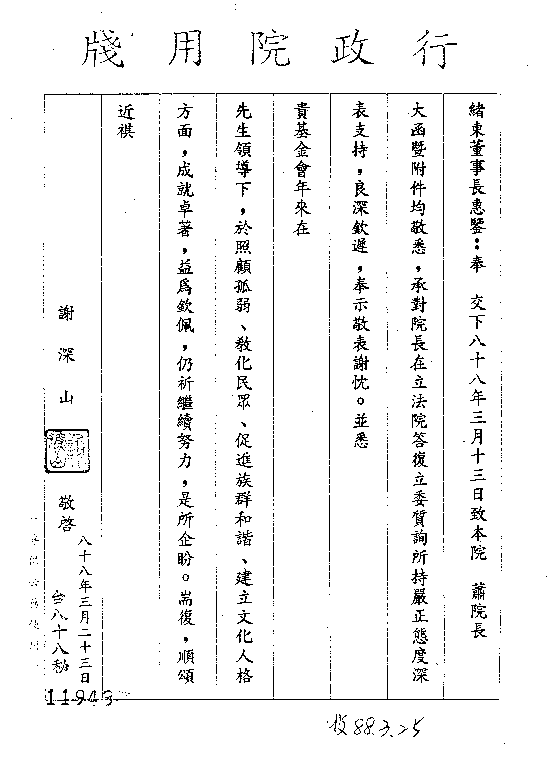 行政院用牋
緒東董事長惠鑒：奉　交下八十八年三月十三日致本院　蕭院長
大函暨附件均敬悉，承對院長在立法院答復立委質詢所持嚴正態度深
表支持，良深欽遲，奉示敬表謝忱。並悉
貴基金會年來在
先生領導下，於照顧孤弱、教化民眾、促進族群和諧、建立文化人格
方面，成就卓著，益為欽佩，仍祈繼續努力，是所企盼。耑復，順頌
近祺
謝深山　敬啓
八十八年三月二十三日
台八十八秘
11943
收88.3.25